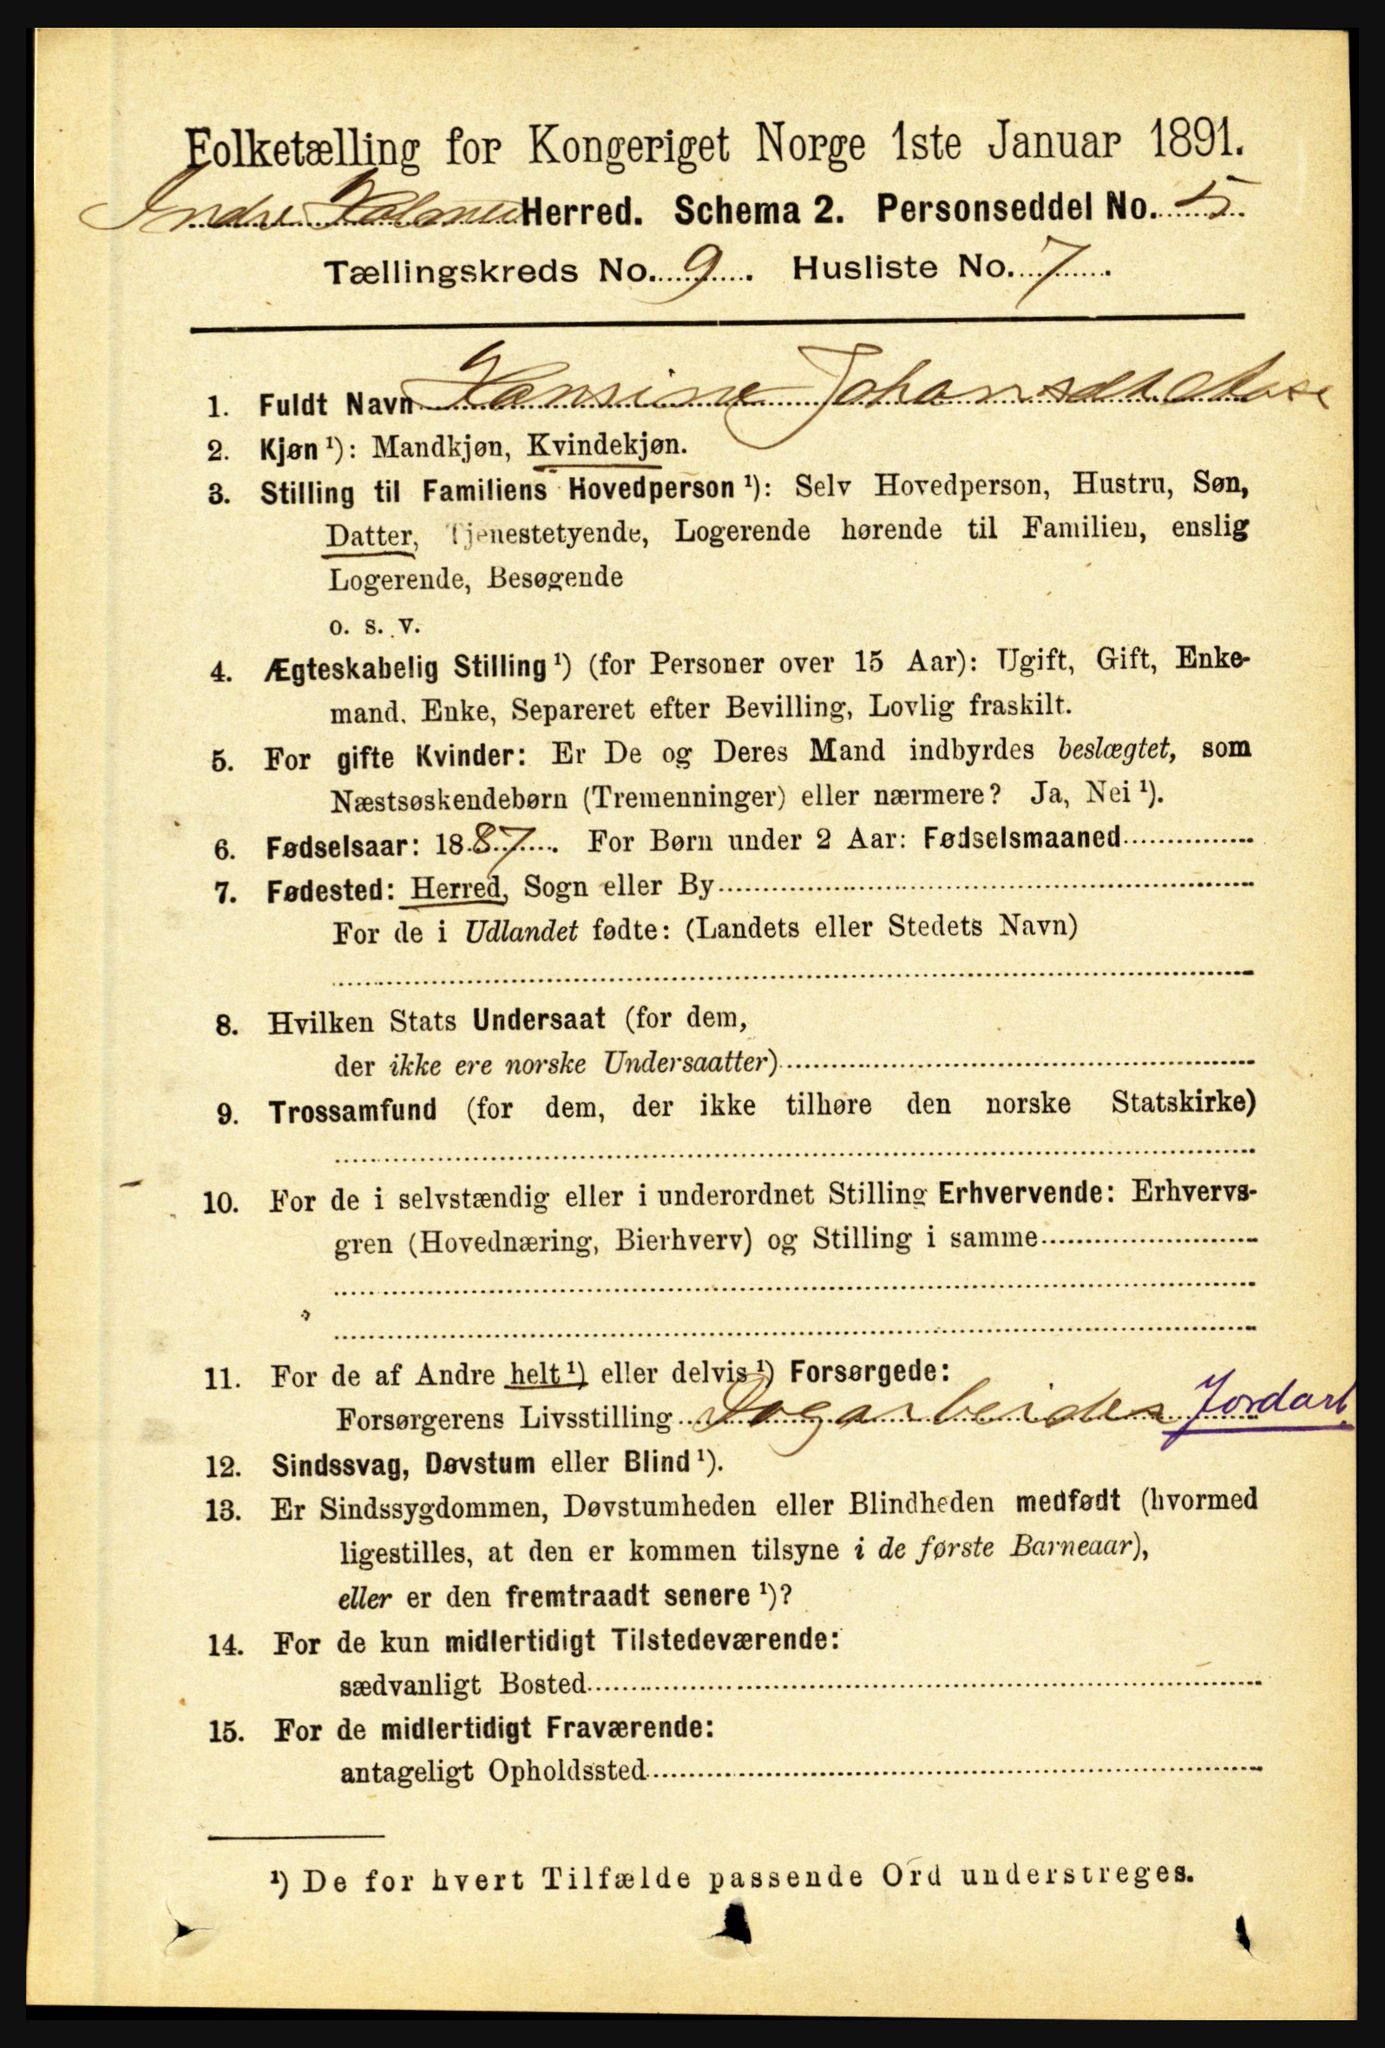 Folketælling for Kongeriget Norge 1ste Januar 1891.
Indre Holmedal Herred. Schema 2. Personseddel No. 5
Tællingskreds No. 9. Husliste No. 7.
1. Fuldt Navn Hansine Johansdt. Aase
2. Kjøn ¹): Mandkjøn, Kvindekjøn.
3. Stilling til Familiens Hovedperson ¹): Selv Hovedperson, Hustru, Søn,
Datter, Tjenestetyende, Logerende hørende til Familien, enslig
Logerende, Besøgende
o. s. v.
4. Ægteskabelig Stilling ¹) (for Personer over 15 Aar): Ugift, Gift, Enke-
mand, Enke, Separeret efter Bevilling, Lovlig fraskilt.
5. For gifte Kvinder: Er De og Deres Mand indbyrdes beslægtet, som
Næstsøskendebørn (Tremenninger) eller nærmere? Ja, Nei ¹).
6. Fødselsaar: 1887. For Børn under 2 Aar: Fødselsmaaned
7. Fødested: Herred, Sogn eller By
For de i Udlandet fødte: (Landets eller Stedets Navn)
8. Hvilken Stats Undersaat (for dem,
der ikke ere norske Undersaatter)
9. Trossamfund (for dem, der ikke tilhøre den norske Statskirke)
10. For de i selvstændig eller i underordnet Stilling Erhvervende: Erhvervs-
gren (Hovednæring, Bierhverv) og Stilling i samme
11. For de af Andre helt ¹) eller delvis ¹) Forsørgede:
Forsørgerens Livsstilling Dagarbeider Jordarb.
12. Sindssvag, Døvstum eller Blind ¹).
13. Er Sindssygdommen, Døvstumheden eller Blindheden medfødt (hvormed
ligestilles, at den er kommen tilsyne i de første Barneaar),
eller er den fremtraadt senere ¹)?
14. For de kun midlertidigt Tilstedeværende:
sædvanligt Bosted
15. For de midlertidigt Fraværende:
antageligt Opholdssted
¹) De for hvert Tilfælde passende Ord understreges.